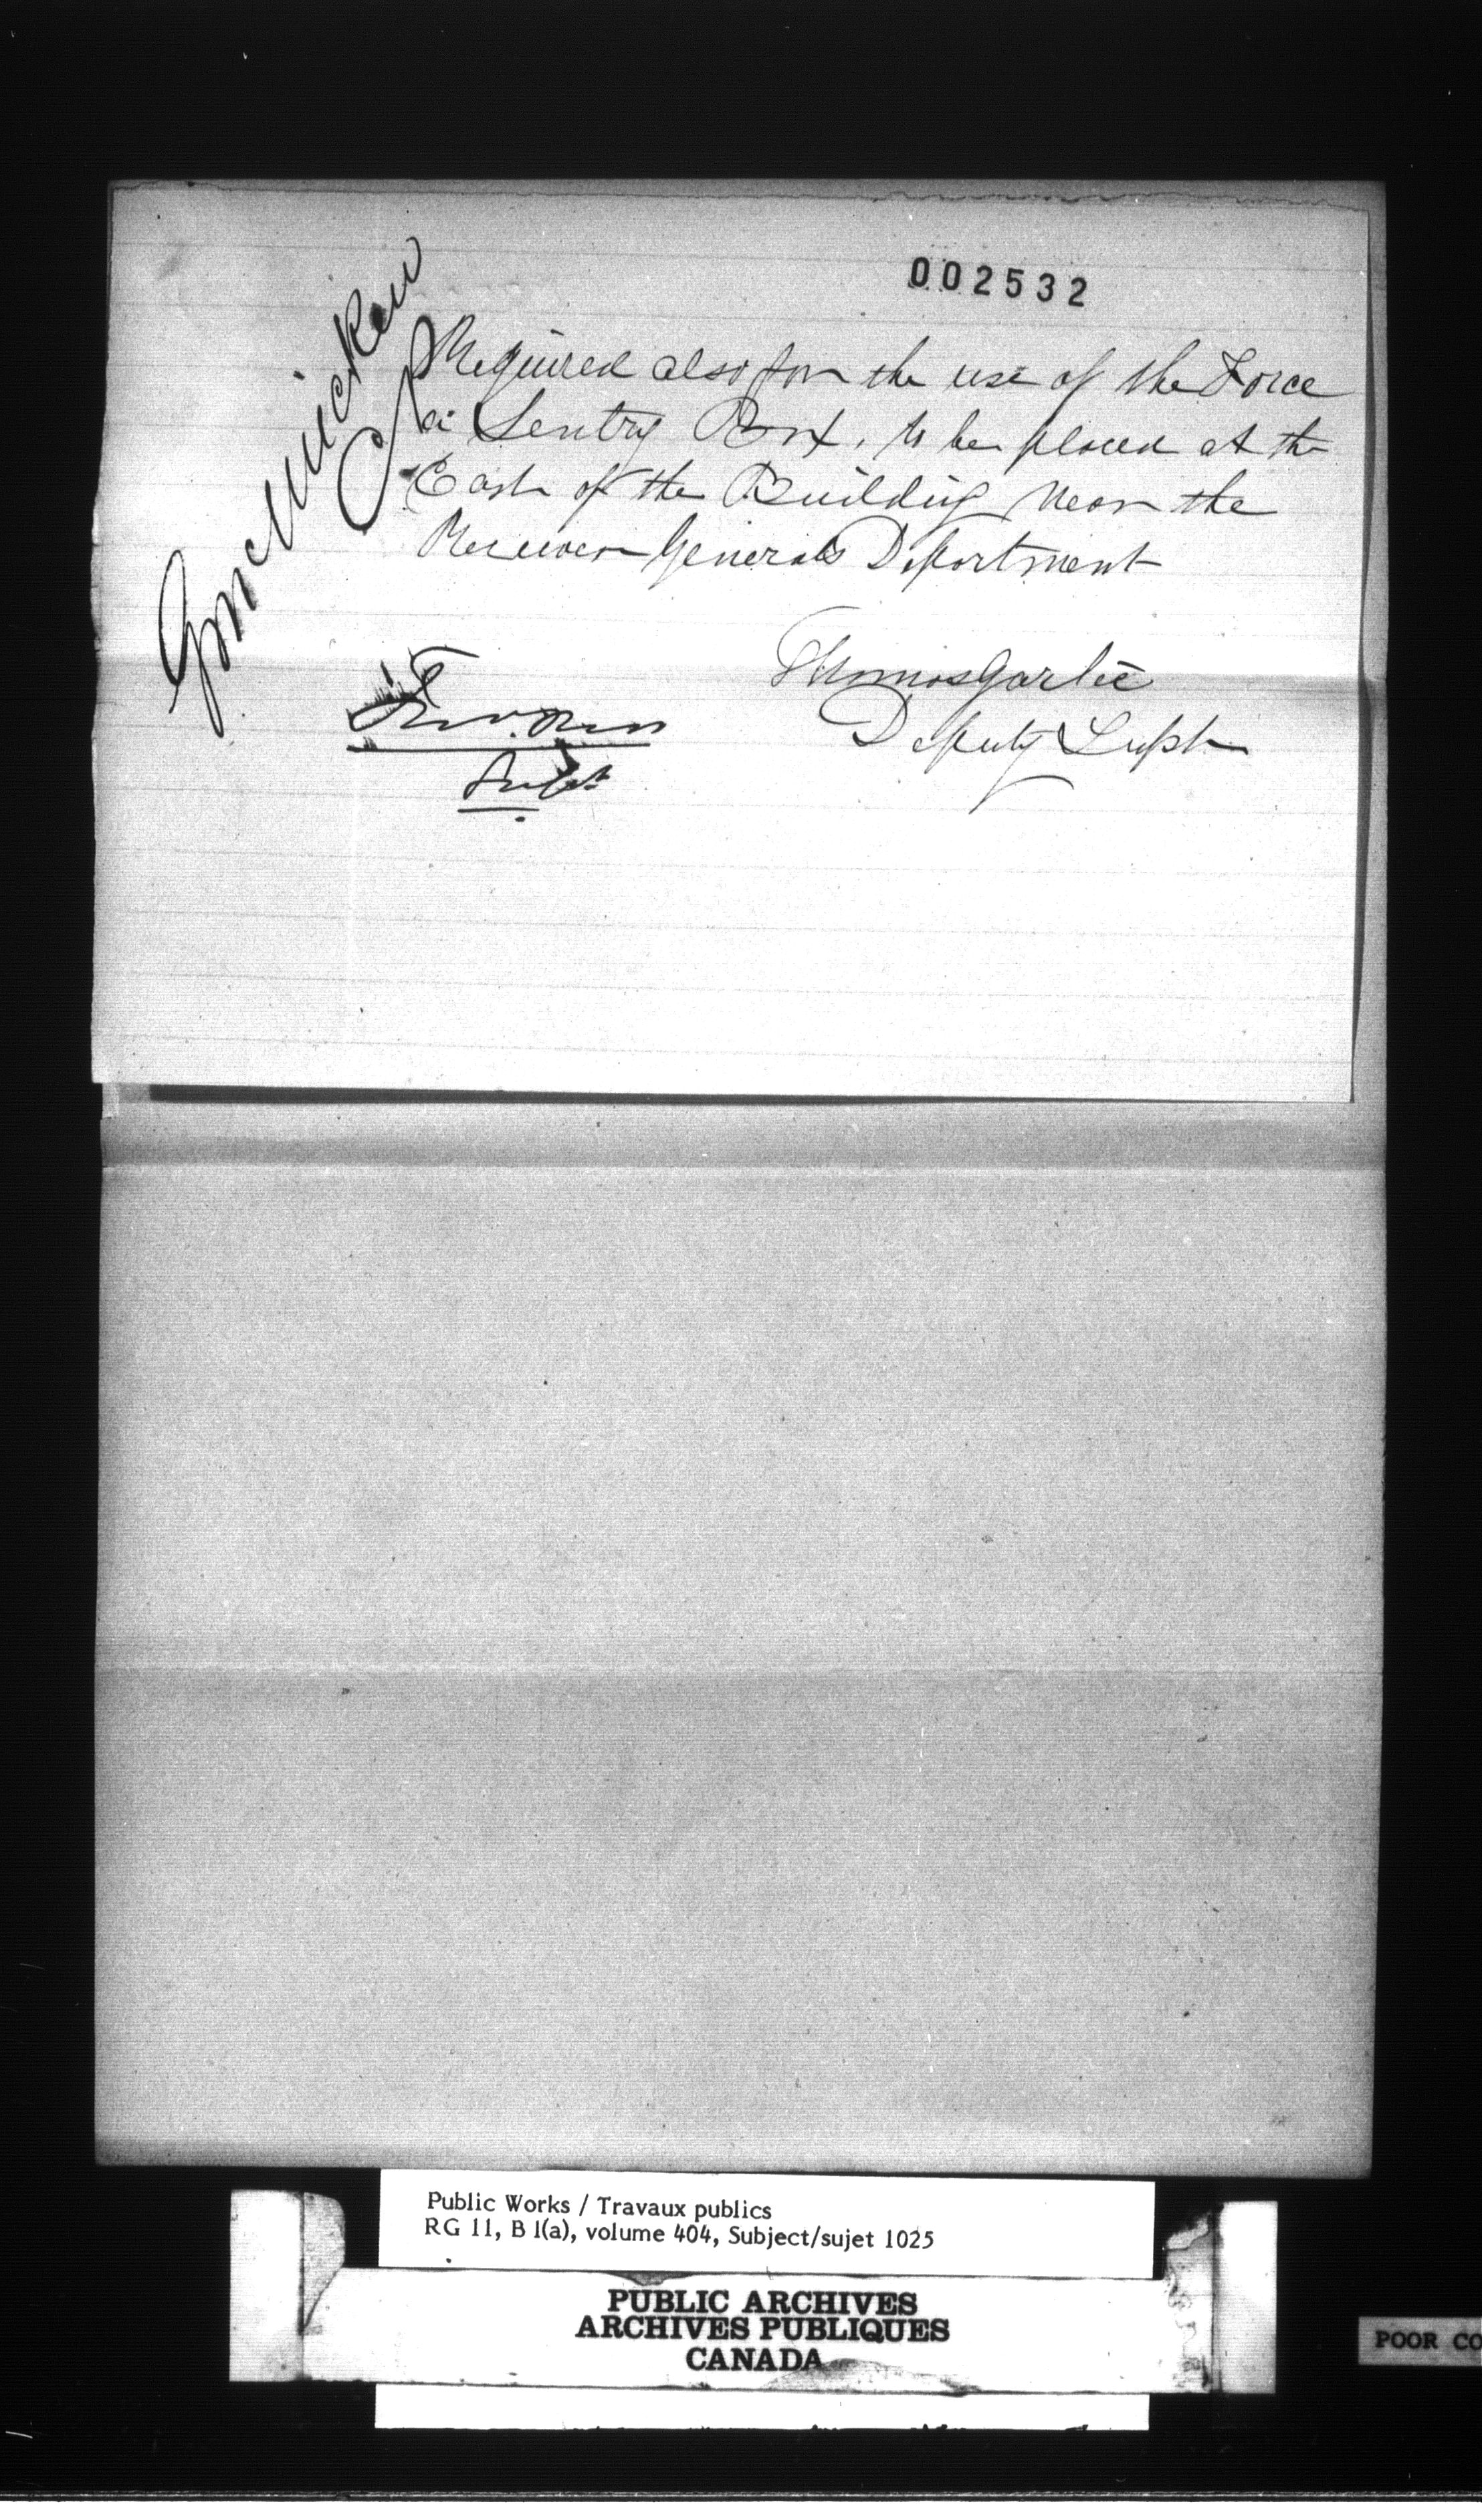 002532
GMcMicken
Required also for the use of the Force
a Sentry Box, to be placed at the
East of the Building near the
Receiver Generals Department
Thomas Garlic
Deputy Supt
Supt
Public Works / Travaux publics
RG 11, B 1(a), volume 404, Subject/sujet 1025
PUBLIC ARCHIVES
ARCHIVES PUBLIQUES
CANADA
POOR CO